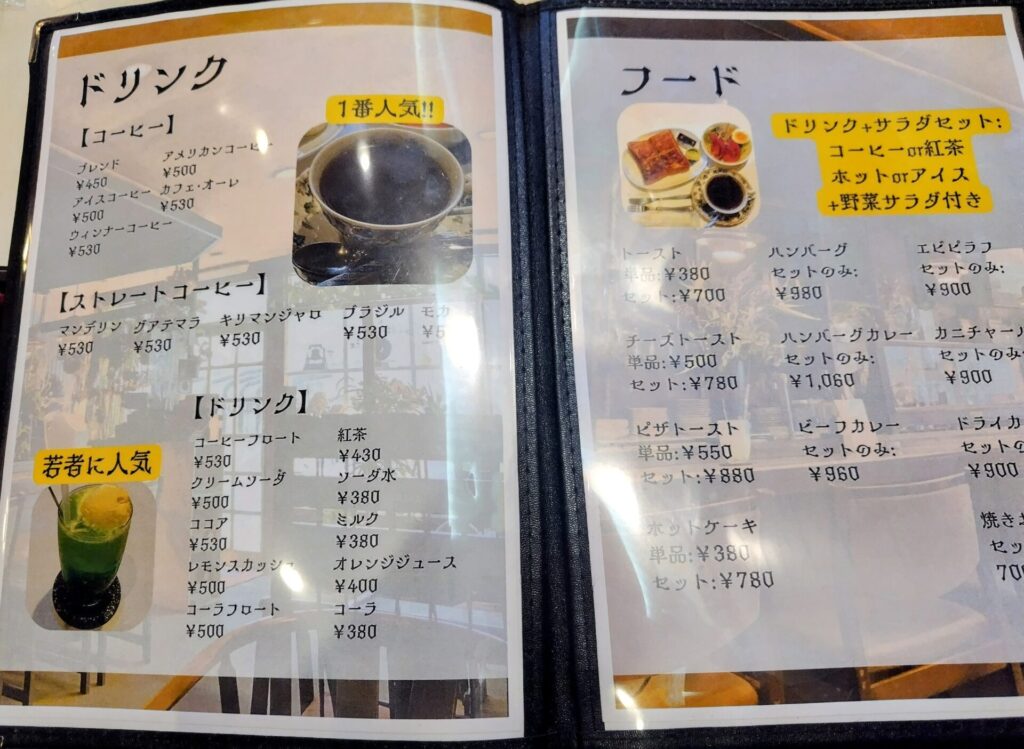 ドリンク
【コーヒー】
1番人気!!
ブレンド
¥450
アメリカンコーヒー
¥500
アイスコーヒー
¥500
カフェ・オーレ
¥530
ウィンナーコーヒー
¥530
【ストレートコーヒー】
マンデリン
¥530
グアテマラ
¥530
キリマンジャロ
¥530
ブラジル
¥530
モカ
【ドリンク】
若者に人気
コーヒーフロート
¥530
クリームソーダ
¥500
ココア
¥530
レモンスカッシュ
¥500
コーラフロート
¥500
紅茶
¥430
ソーダ水
¥380
ミルク
¥380
オレンジジュース
¥400
コーラ
¥380
フード
ドリンク+サラダセット:
コーヒーor紅茶
ホットorアイス
+野菜サラダ付き
トースト
単品:¥380
セット:¥700
ハンバーグ
セットのみ:
¥980
エビピラフ
セットのみ:
¥900
チーズトースト
単品:¥500
セット:¥780
ハンバーグカレー
セットのみ:
¥1,060
カニチャー
セットのみ:
¥900
ピザトースト
単品:¥550
セット:¥880
ビーフカレー
セットのみ:
¥960
ドライカ
セットの
¥900
ホットケーキ
単品:¥380
セット:¥780
焼き
セッ
700